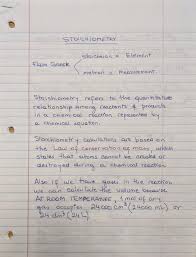 STOICHIOMETRY
stoicheion = Element
From Greek
metron = Measurement.
Stoichiometry refers to the quantitative
relationship among reactants & products
in a chemical reaction represented by
a chemical equation.
Stoichiometry calculations are based on
the Law of conservation of mass, which
states that atoms cannot be created or
destroyed during a chemical reaction.
Also if we have gases in the reaction
we can calculate the volume because
AT ROOM TEMPERATURE, 1 mol of any
gas occupies 24000 cm³ (24000 mL) or
24 dm³ (24 L)